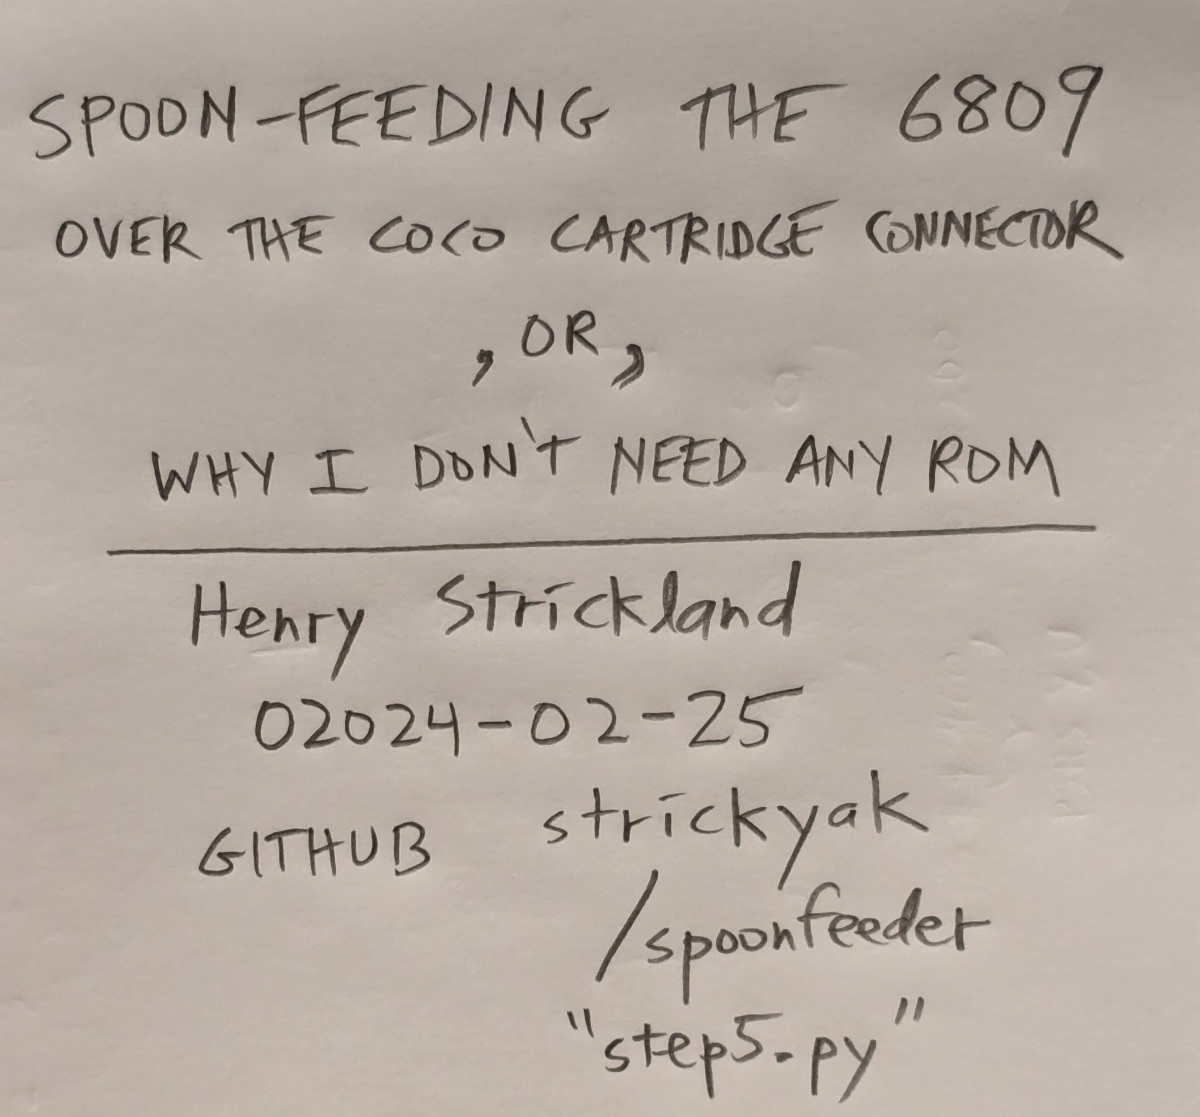 SPOON-FEEDING THE 6809
OVER THE COCO CARTRIDGE CONNECTOR
, OR,
WHY I DON'T NEED ANY ROM
Henry Strickland
02024-02-25
GITHUB strickyak
/spoonfeeder
"step5.py"